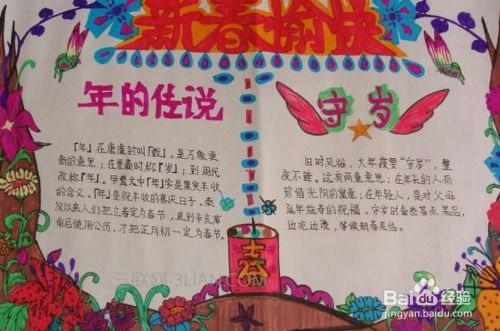 新春愉快
年的传说
「年」在唐虞时叫「载」，是万象更
新的意思；在夏商时称「岁」；到周代
改称「年」。甲骨文中「年」字是果实丰收
的含义。「年」是祝丰收的喜庆日子。秦
汉以来人们把立春定为春节，直到辛亥革
命后使用公历，才把正月初一定为春节。
守岁
旧时风俗，大年夜要“守岁”，整
夜不睡。这有两重意思：在年长的人有
珍惜光阴的寓意；在年轻人，是对父母
延年益寿的祝福。守岁时备些茶点、果品，
边吃边谈，等候新春来临。
三联网 3LIAN.COM
Baidu经验
jingyan.baidu.com